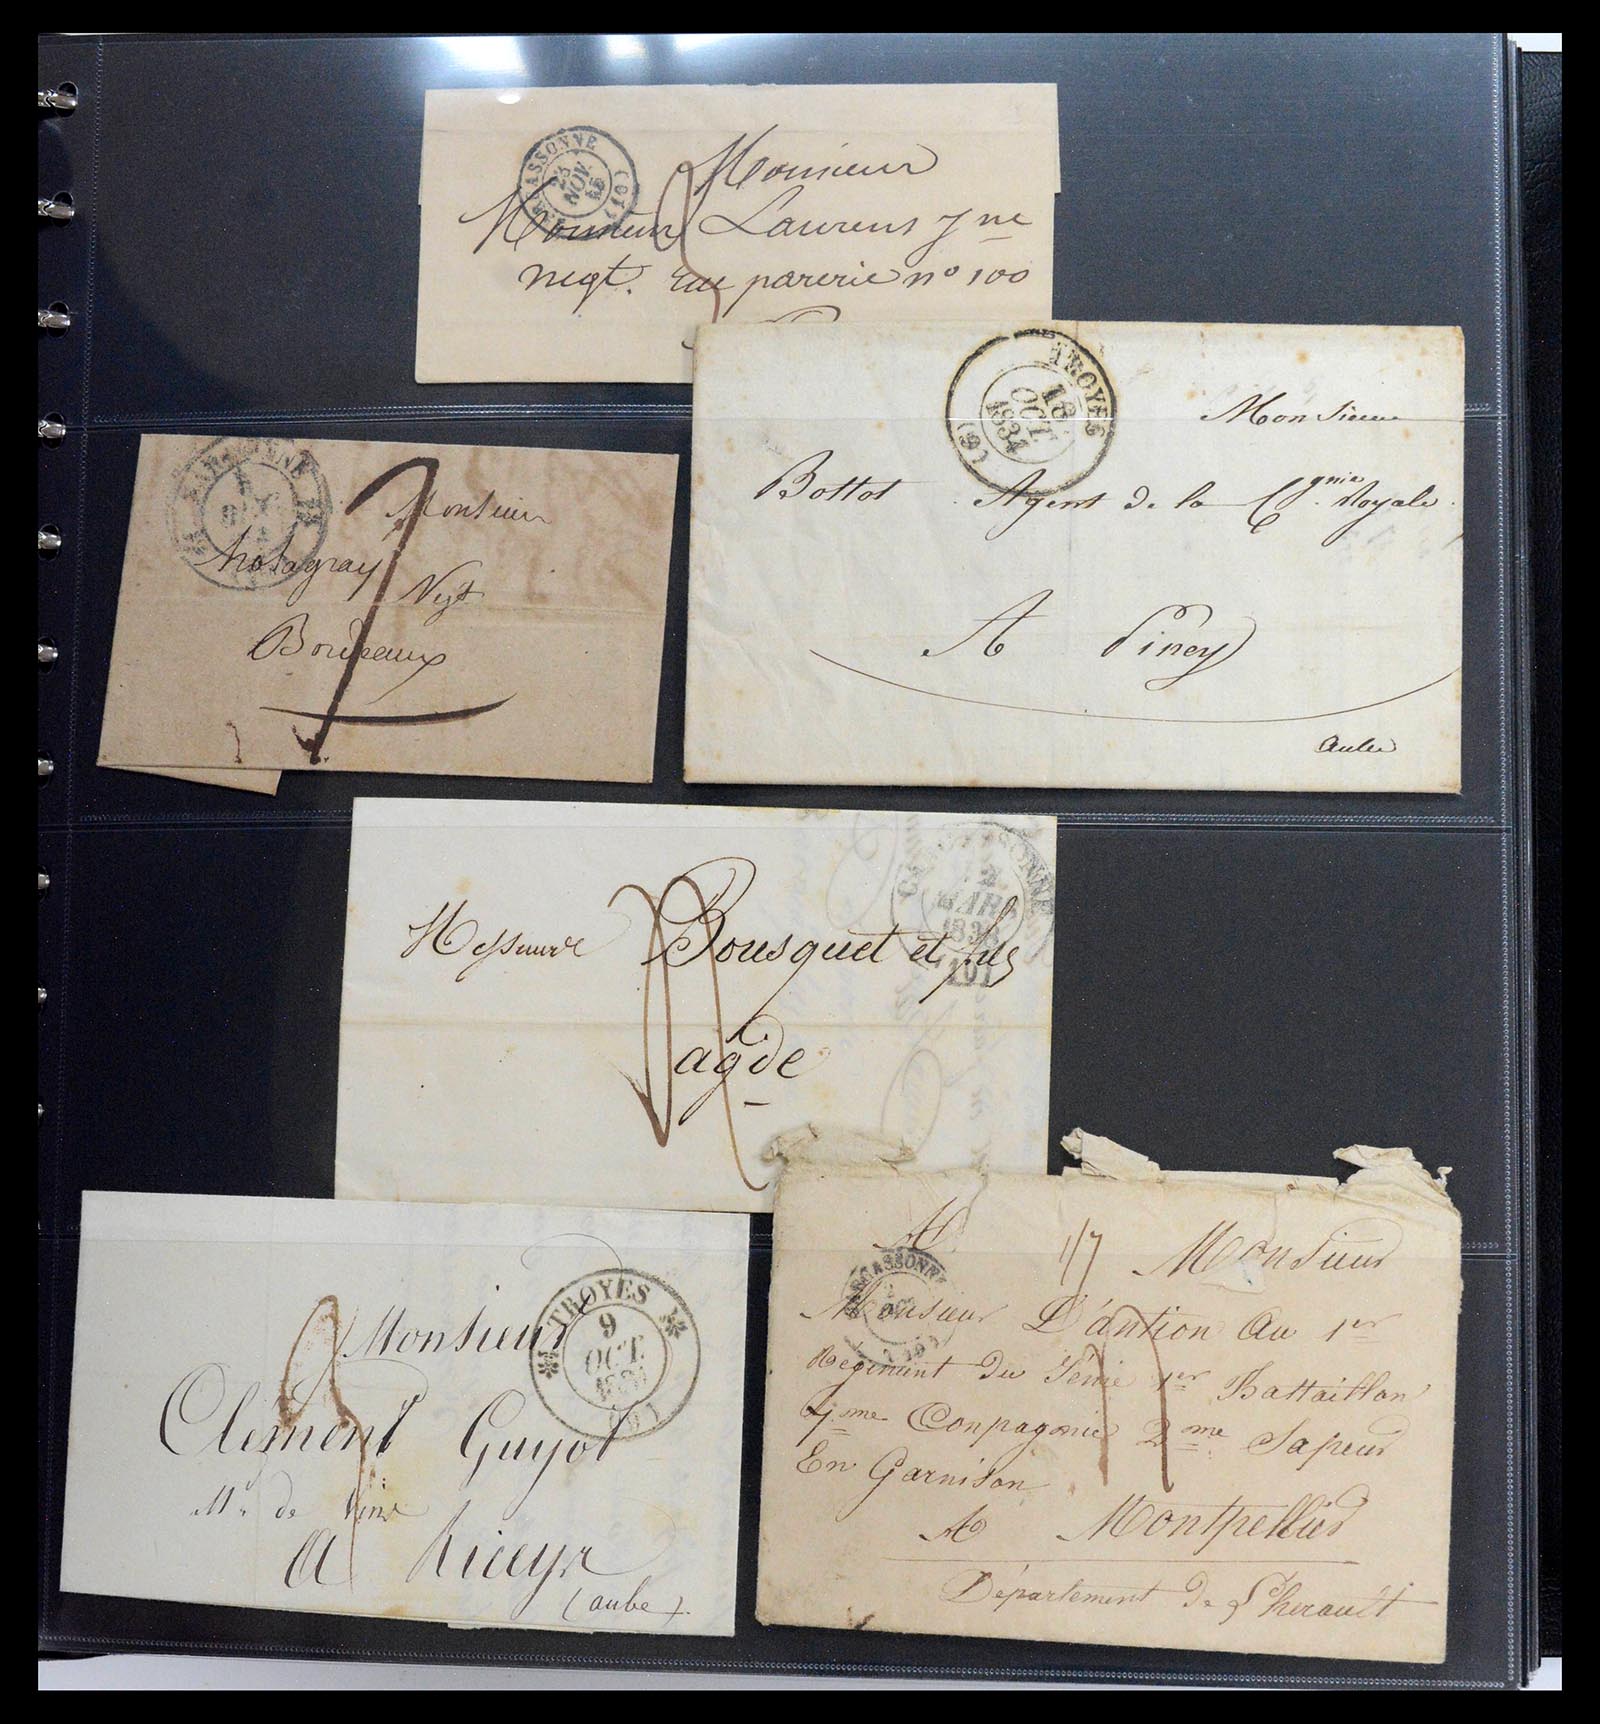 CARCASSONNE (10)
23
NOV.
45
Monsieur
Monsieur Laurens Jne
negt. rue parerie no 100
TROYES (9)
18
OCT.
1834
Monsieur
Bottot Agent de la Cgnie Royale
A Piney
Aube
NARBONNE
Monsieur
Negt
Bordeaux
CARCASSONNE
12
MARS
1838
(10)
Messieurs Bousquet et fils
agde
TROYES
9
OCT.
(9)
Monsieur
Clément Guyot
Md de Vins
A Riceys
(aube).
CARCASSONNE
(10)
A Monsieur
Monsieur D'antion Au 1er
Regiment Du Génie 1er Battaillon
Conpagnie 2me Sapeur
En Garnison
A Montpellier
Département De L'herault